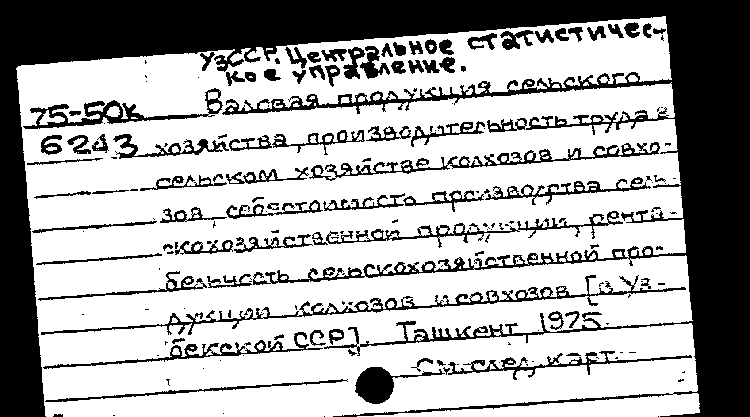 УзССР. Центральное статистичес-
кое управление.
75-50к Валовая продукция сельского
6243 хозяйства, производительность труда в
сельском хозяйстве колхозов и совхо-
зов, себестоимость производства сель-
скохозяйственной продукции, рента-
бельность сельскохозяйственной про-
дукции колхозов и совхозов [в Уз-
бекской ССР]. Ташкент, 1975.
См. след. карт.